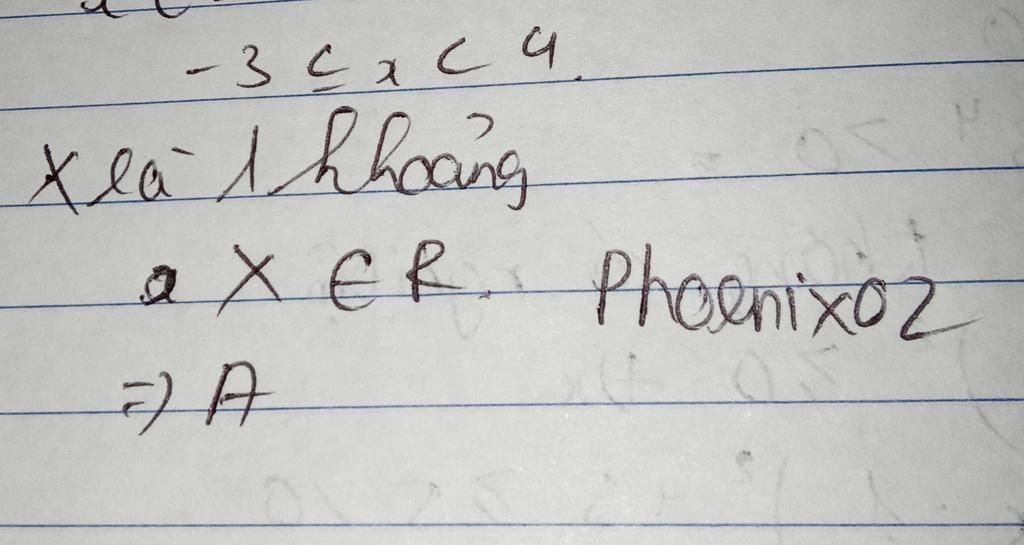 -3 ≤ x < 4.
X là 1 khoảng
X ∈ R. Phoenix02
=> A